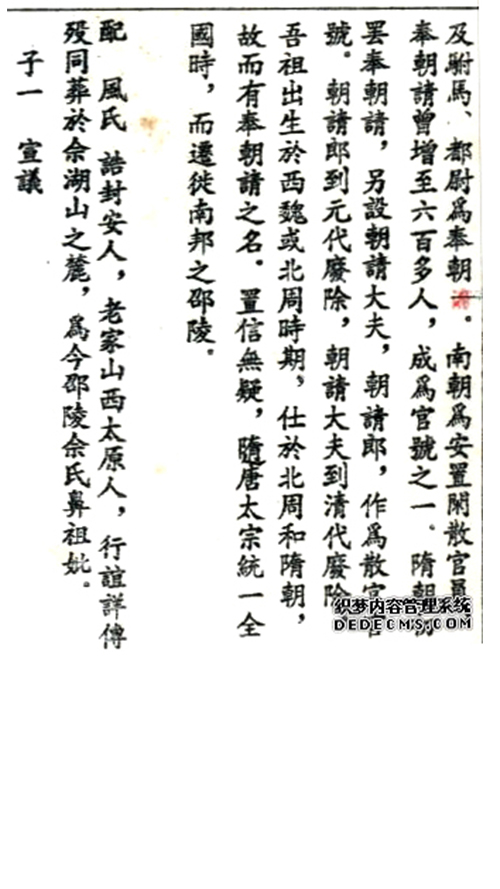 及駙馬、都尉爲奉朝請。南朝爲安置閑散官員,
奉朝請曾增至六百多人,成爲官號之一。隋朝初
罷奉朝請,另設朝請大夫,朝請郎,作爲散官官
號。朝請郎到元代廢除,朝請大夫到清代廢除。
吾祖出生於西魏或北周時期,仕於北周和隋朝,
故而有奉朝請之名。置信無疑,隨唐太宗統一全
國時,而遷徙南邦之邵陵。
配 風氏 誥封安人,老家山西太原人,行誼詳傳
歿同葬於佘湖山之麓,爲今邵陵佘氏鼻祖妣。
子一 宣議
织梦内容管理系统
DEDECMS.COM